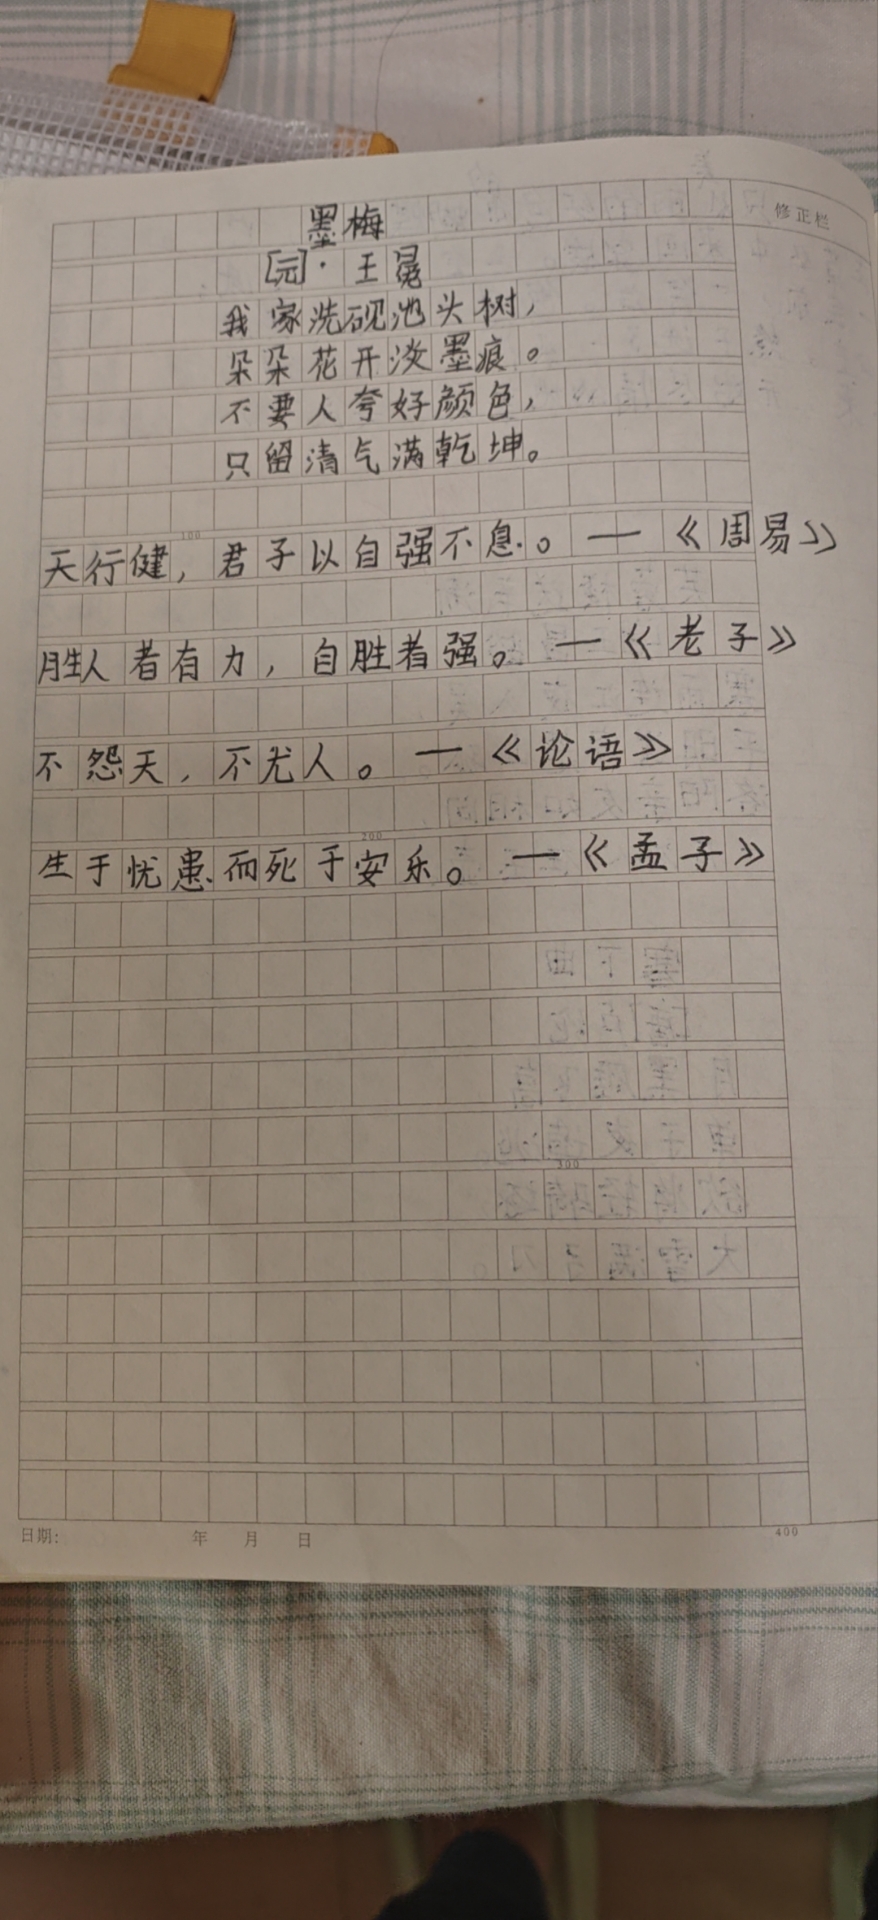 修正栏
墨梅
[元]·王冕
我家洗砚池头树，
朵朵花开淡墨痕。
不要人夸好颜色，
只留清气满乾坤。
100
天行健，君子以自强不息。—《周易》
胜人者有力，自胜者强。—《老子》
不怨天，不尤人。—《论语》
200
生于忧患而死于安乐。—《孟子》
300
日期： 年 月 日
400